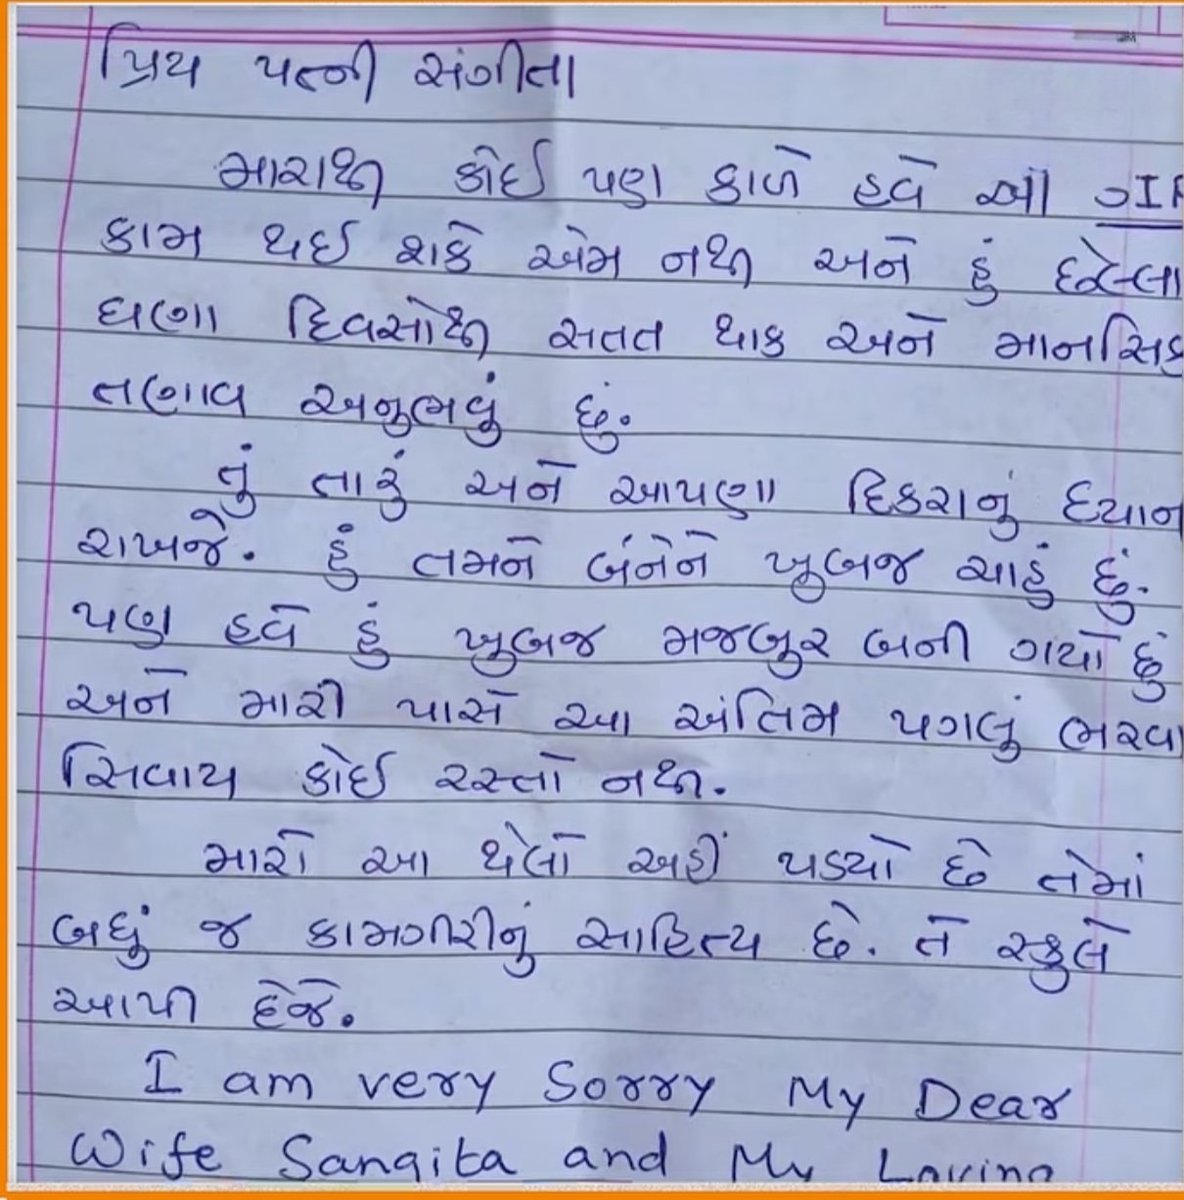 પ્રિય પત્ની સંગીતા
મારાથી કોઈ પણ કાળે હવે આ SIR
કામ થઈ શકે એમ નથી અને હું છેલ્લા
ઘણા દિવસોથી સતત થાક અને માનસિક
તણાવ અનુભવું છું.
તું તારું અને આપણા દિકરાનું ધ્યાન
રાખજે. હું તમને બંનેને ખુબજ ચાહું છું.
પણ હવે હું ખુબજ મજબુર બની ગયો છું
અને મારી પાસે આ અંતિમ પગલું ભરવા
સિવાય કોઈ રસ્તો નથી.
મારો આ થેલો અહીં પડ્યો છે તેમાં
બધું જ કામગીરીનું સાહિત્ય છે. તે સ્કુલે
આપી દેજે.
I am very Sorry My Dear
Wife Sangita and My Loving